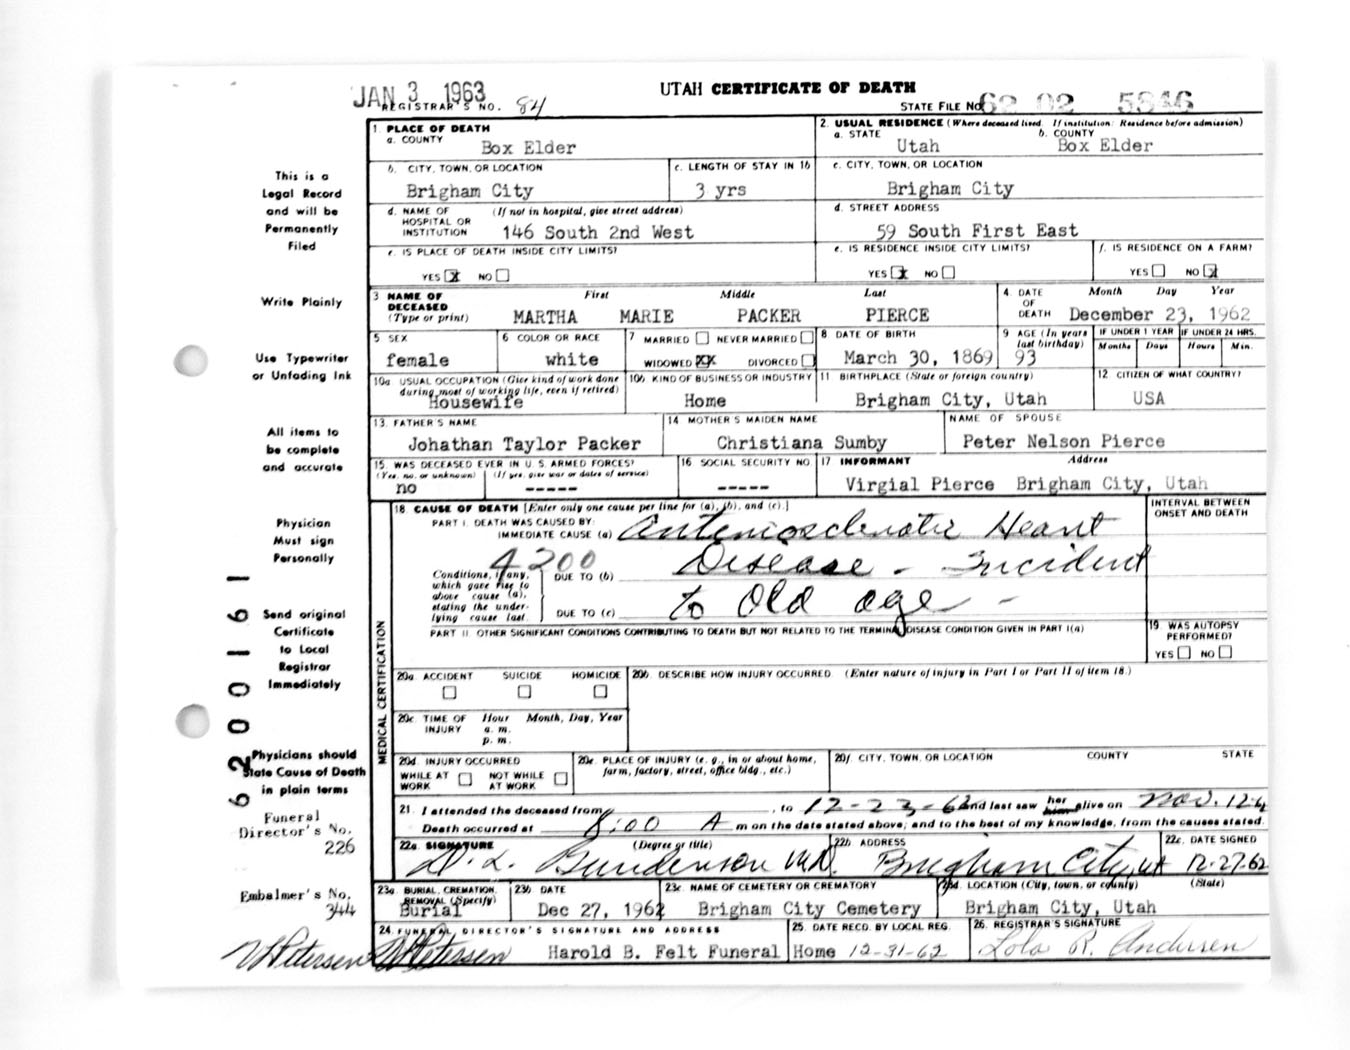 JAN 3 1963
UTAH CERTIFICATE OF DEATH
REGISTRAR'S NO. 84
STATE FILE NO. 62 02 5846
1. PLACE OF DEATH
a. COUNTY
Box Elder
2. USUAL RESIDENCE (Where deceased lived. If institution: Residence before admission)
a. STATE
Utah
b. COUNTY
Box Elder
b. CITY, TOWN, OR LOCATION
Brigham City
c. LENGTH OF STAY IN 1b
3 yrs
c. CITY, TOWN, OR LOCATION
Brigham City
d. NAME OF HOSPITAL OR INSTITUTION
(If not in hospital, give street address)
146 South 2nd West
d. STREET ADDRESS
59 South First East
e. IS PLACE OF DEATH INSIDE CITY LIMITS?
YES x NO
e. IS RESIDENCE INSIDE CITY LIMITS?
YES x NO
f. IS RESIDENCE ON A FARM?
YES NO x
3 NAME OF DECEASED (Type or print)
First Middle Last
MARTHA MARIE PACKER PIERCE
4. DATE OF DEATH
Month Day Year
December 23, 1962
5 SEX
female
6 COLOR OR RACE
white
7 MARRIED NEVER MARRIED
WIDOWED XX DIVORCED
8 DATE OF BIRTH
March 30, 1869
9 AGE (In years last birthday)
93
IF UNDER 1 YEAR
Months Days
IF UNDER 24 HRS.
Hours Min.
10a USUAL OCCUPATION (Give kind of work done during most of working life, even if retired)
Housewife
10b. KIND OF BUSINESS OR INDUSTRY
Home
11 BIRTHPLACE (State or foreign country)
Brigham City, Utah
12 CITIZEN OF WHAT COUNTRY?
USA
13. FATHER'S NAME
Johathan Taylor Packer
14 MOTHER'S MAIDEN NAME
Christiana Sumby
NAME OF SPOUSE
Peter Nelson Pierce
15. WAS DECEASED EVER IN U. S. ARMED FORCES?
(Yes, no. or unknown) (If yes, give war or dates of service)
no -----
16 SOCIAL SECURITY NO.
-----
17 INFORMANT Address
Virgial Pierce Brigham City, Utah
18. CAUSE OF DEATH [Enter only one cause per line for (a), (b), and (c).]
PART I. DEATH WAS CAUSED BY:
IMMEDIATE CAUSE (a) Arteriosclerotic Heart
4200
DUE TO (b) Disease - Incident
DUE TO (c) to Old age -
Conditions, if any, which gave rise to above cause (a), stating the under-lying cause last.
INTERVAL BETWEEN ONSET AND DEATH
PART II. OTHER SIGNIFICANT CONDITIONS CONTRIBUTING TO DEATH BUT NOT RELATED TO THE TERMINAL DISEASE CONDITION GIVEN IN PART I(a)
19 WAS AUTOPSY PERFORMED?
YES NO
MEDICAL CERTIFICATION
20a. ACCIDENT SUICIDE HOMICIDE
20b. DESCRIBE HOW INJURY OCCURRED. (Enter nature of injury in Part I or Part II of item 18.)
20c. TIME OF INJURY
Hour Month, Day, Year
a. m.
p. m.
20d. INJURY OCCURRED
WHILE AT WORK NOT WHILE AT WORK
20e. PLACE OF INJURY (e. g., in or about home, farm, factory, street, office bldg., etc.)
20f. CITY, TOWN, OR LOCATION COUNTY STATE
21. I attended the deceased from , to 12-23-62 and last saw her him alive on Nov. 12-6
Death occurred at 8:00 A m on the date stated above; and to the best of my knowledge, from the causes stated.
22a. SIGNATURE (Degree or title)
D. L. Bunderson M.D.
22b ADDRESS
Brigham City, Ut
22c. DATE SIGNED
12-27-62
23a. BURIAL, CREMATION, REMOVAL (Specify)
Burial
23b DATE
Dec 27, 1962
23c NAME OF CEMETERY OR CREMATORY
Brigham City Cemetery
23d. LOCATION (City, town, or county) (State)
Brigham City, Utah
24. FUNERAL DIRECTOR'S SIGNATURE AND ADDRESS
V Petersen Harold B. Felt Funeral Home
25. DATE RECD. BY LOCAL REG.
12-31-62
26. REGISTRAR'S SIGNATURE
Lola R. Andersen
This is a
Legal Record
and will be
Permanently
Filed
Write Plainly
Use Typewriter
or Unfading Ink
All items to
be complete
and accurate
Physician
Must sign
Personally
Send original
Certificate
to Local
Registrar
Immediately
Physicians should
State Cause of Death
in plain terms
62 00161
Funeral
Director's No.
226
Embalmer's No.
344
V Petersen